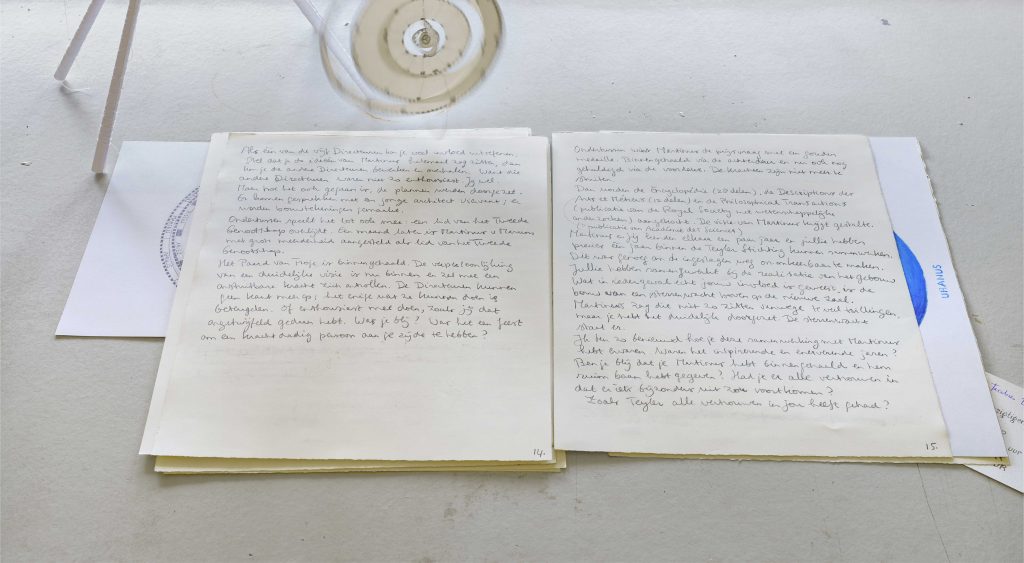 Als één van de vijf Directeuren kon je veel invloed uitoefenen.
Stel dat je de ideeën van Martinus helemaal zag zitten, dan
kon je de andere Directeuren bewerken en overhalen. Want die
andere Directeuren waren niet zo enthousiast. Jij wel.
Maar hoe het ook gegaan is, de plannen werden doorgezet.
Er komen gesprekken met een jonge architect (Viervant); er
worden bouwtekeningen gemaakt.
Ondertussen speelt het lot ook mee: een lid van het Tweede
Genootschap overlijdt. Een maand later is Martinus v Marum
met grote meerderheid aangesteld als lid van het Tweede
Genootschap.
Het Paard van Troje is binnengehaald. De verpersoonlijking
van een duidelijke visie is nu binnen en zal met een
onstuitbare kracht zich ontrollen. De Directeuren kunnen
geen kant meer op; het enige wat ze kunnen doen is
beteugelen. Of enthousiast mee doen, zoals jij dat
ongetwijfeld gedaan hebt. Was je blij? Was het een feest
om een krachtdadig persoon aan je zijde te hebben?
14.
Ondertussen wint Martinus de prijsvraag met een gouden
medaille. Binnengehaald via de achterdeur en nu ook nog
gehuldigd via de voordeur. De krachten zijn niet meer te
stuiten.
Dan worden de Encyclopédie (20 delen), de Descriptions der
Arts et Métiers (12 delen) en de Philosophical Transactions
(publicatie van de Royal Society met wetenschappelijke
onderzoeken) aangeschaft. De visie van Martinus krijgt gestalte.
(publicatie van Académie des Sciences)
Martinus en jij kenden elkaar een paar jaar en jullie hebben
precies één jaar binnen de Teyler Stichting kunnen samenwerken.
Dat was genoeg om de ingeslagen weg onomkeerbaar te maken.
Jullie hebben samengewerkt bij de realisatie van het gebouw.
Wat in ieder geval echt jouw invloed is geweest, is de
bouw van een sterrenwacht boven op de nieuwe zaal.
Martinus zag die niet zo zitten vanwege te veel trillingen,
maar je hebt het duidelijk doorgezet. De sterrenwacht
staat er.
Ik ben zo benieuwd hoe je deze samenwerking met Martinus
hebt ervaren. Waren het inspirerende en enerverende jaren?
Ben je blij dat je Martinus hebt binnengehaald en hem
ruim baan hebt gegeven? Had je er alle vertrouwen in
dat er iets bijzonder uit zou voortkomen?
Zoals Teyler alle vertrouwen in jou heeft gehad?
15.
URANUS